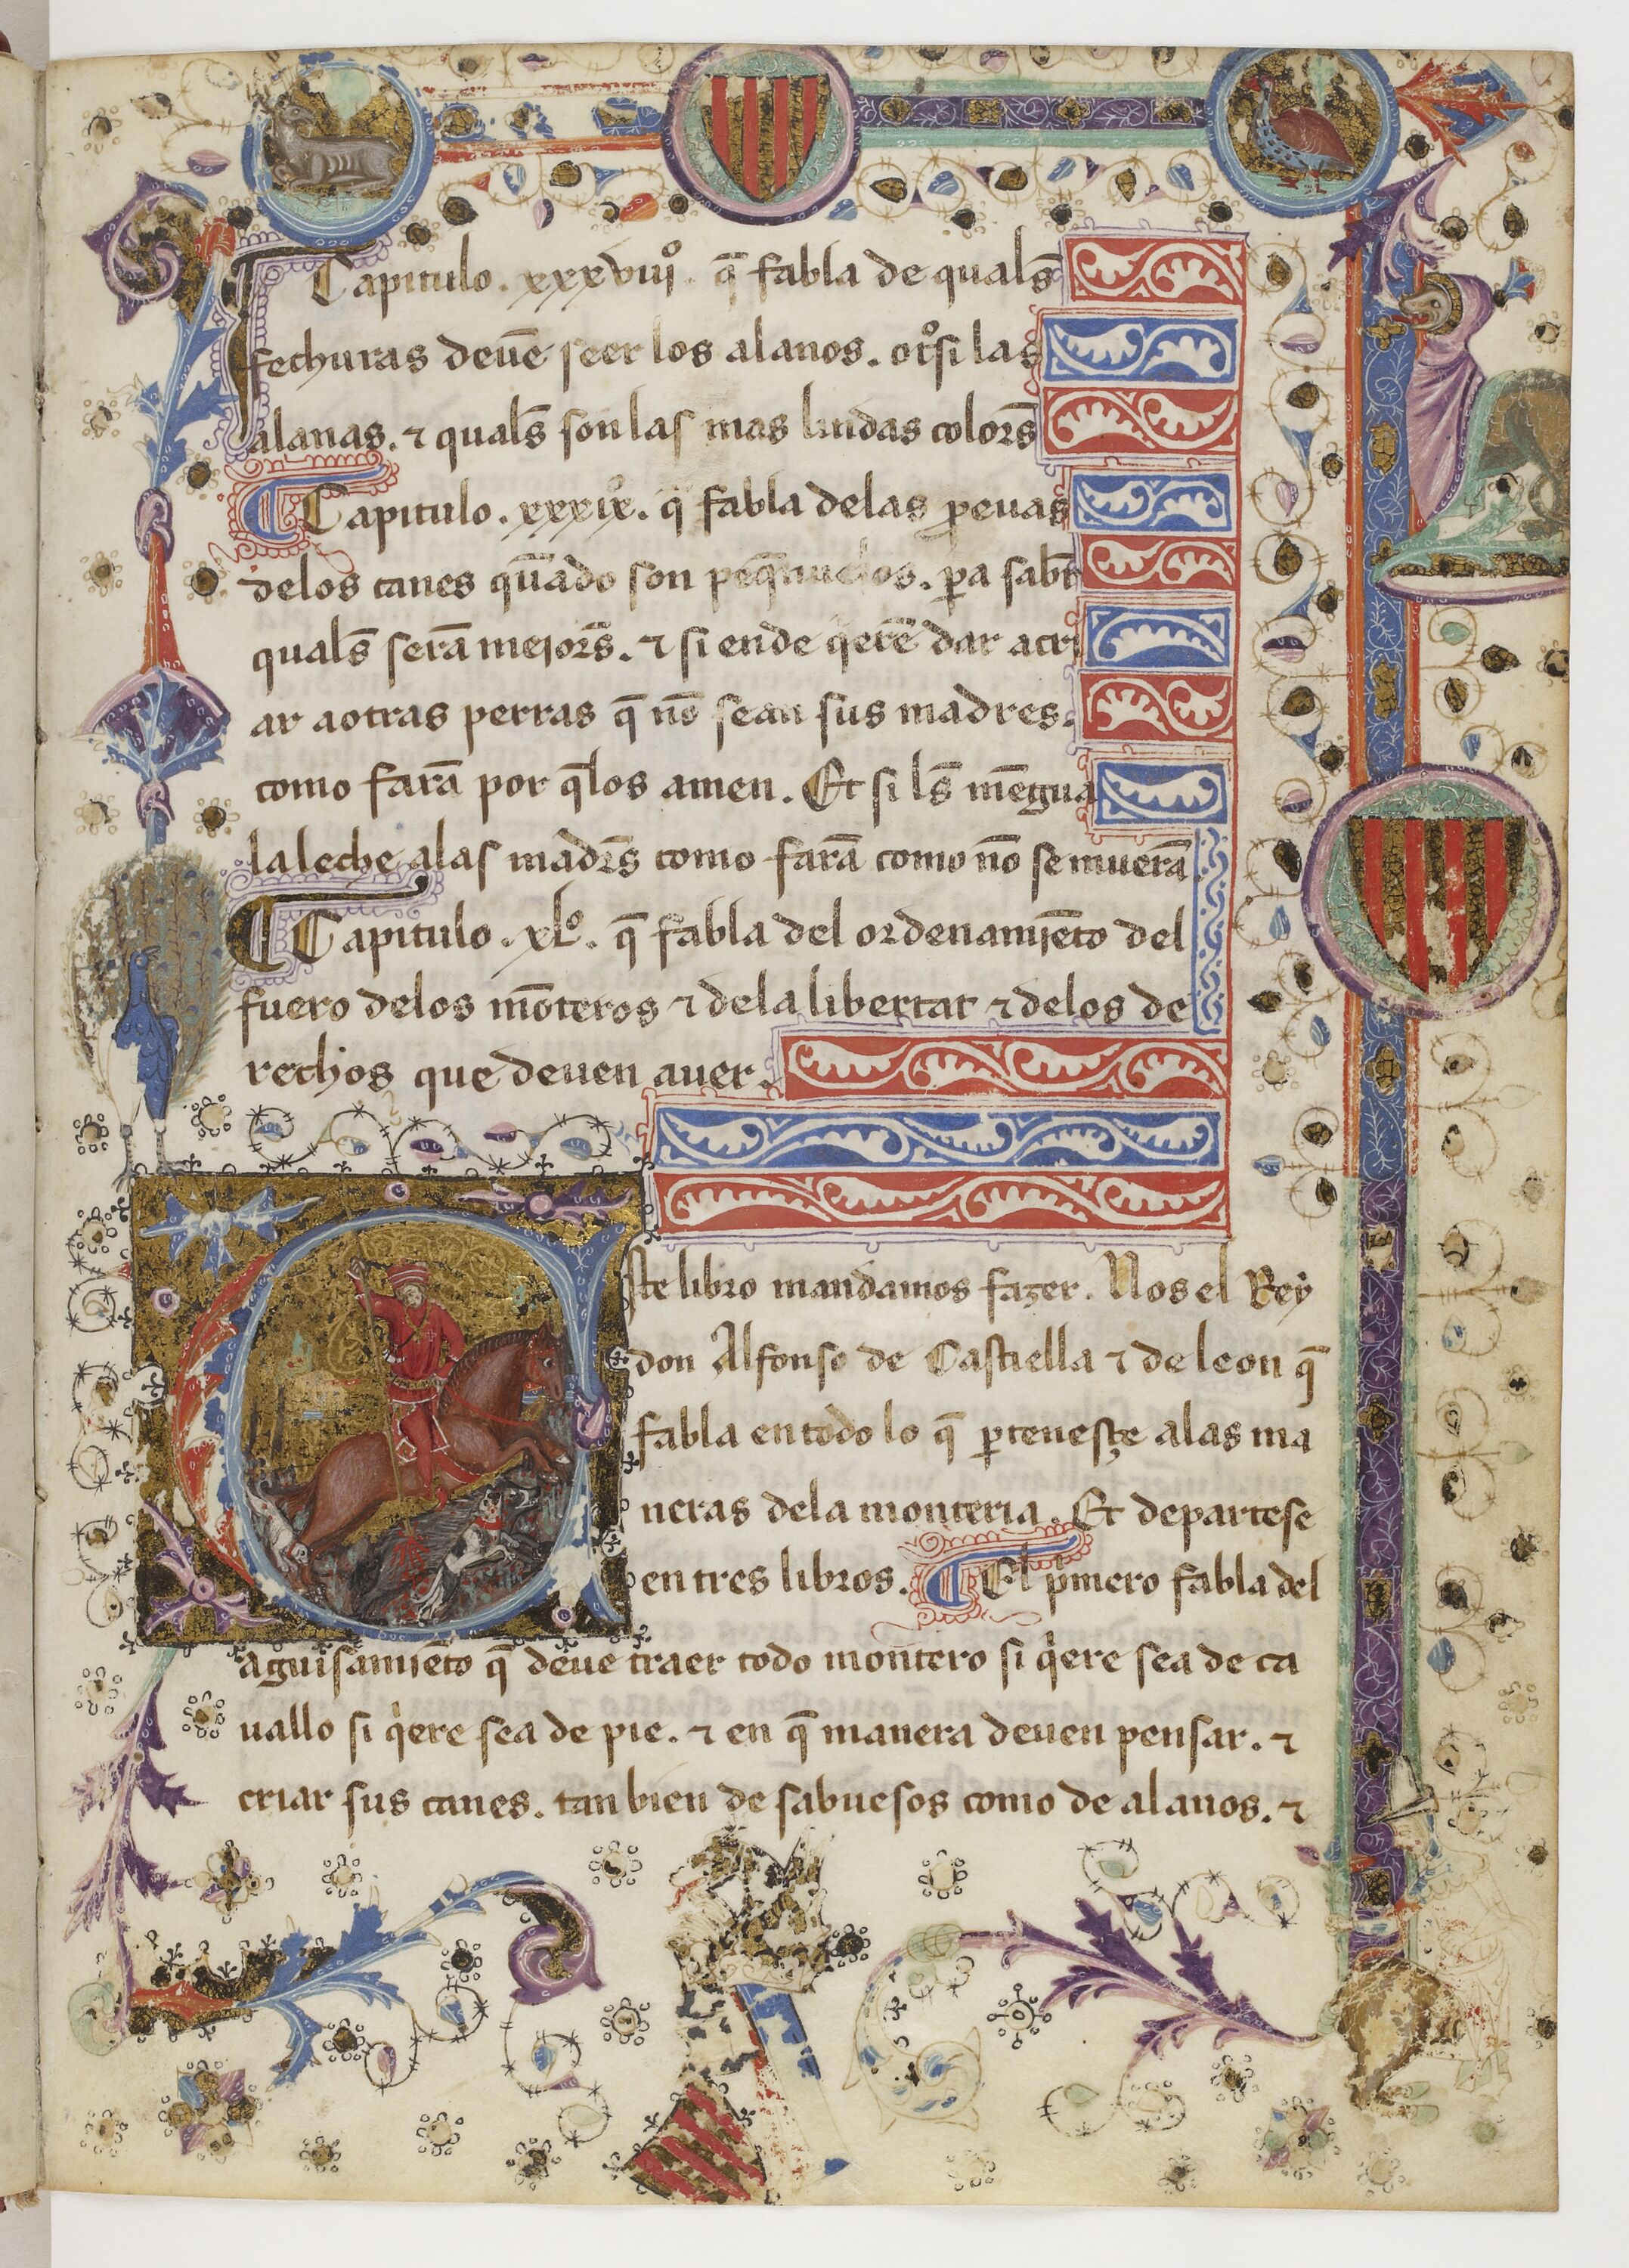 Capitulo . xxxviijº . q̃ fabla de quals̃
fechuras deuẽ seer los alanos . otºsi las
alanas . ⁊ quals̃ son las mas lindas colors̃
Capitulo . xxxixº . q̃ fabla delas ꝓeuas
delos canes quãdo son peq̃nuelos . ꝑa sab̃r
quals̃ serã mejors̃ . ⁊ si ende q̇erẽ dar acri
ar aotras perras q̃ nõ sean sus madres .
como farã por q̃los amen . Et si ls̃ mẽgua
la leche alas madrs̃ como farã como nõ se muerã
Capitulo . xLº . q̃ fabla del ordenamjẽto del
fuero delos mõteros ⁊ dela libertat ⁊ delos de
rechos que deuen auer .
Este libro mandamos fazer . Nos el Rey
don Alfonso de Castiella ⁊ de leon q̃
fabla en todo lo q̃ ꝑtenesçe alas ma
neras dela monteria . Et departese
en tres libros . El pͥmero fabla del
aguisamjẽto q̃ deue traer todo montero si q̇ere sea de ca
uallo si q̇ere sea de pie . ⁊ en q̃ manera deuen pensar . ⁊
criar sus canes . tan bien de sabuesos como de alanos . ⁊